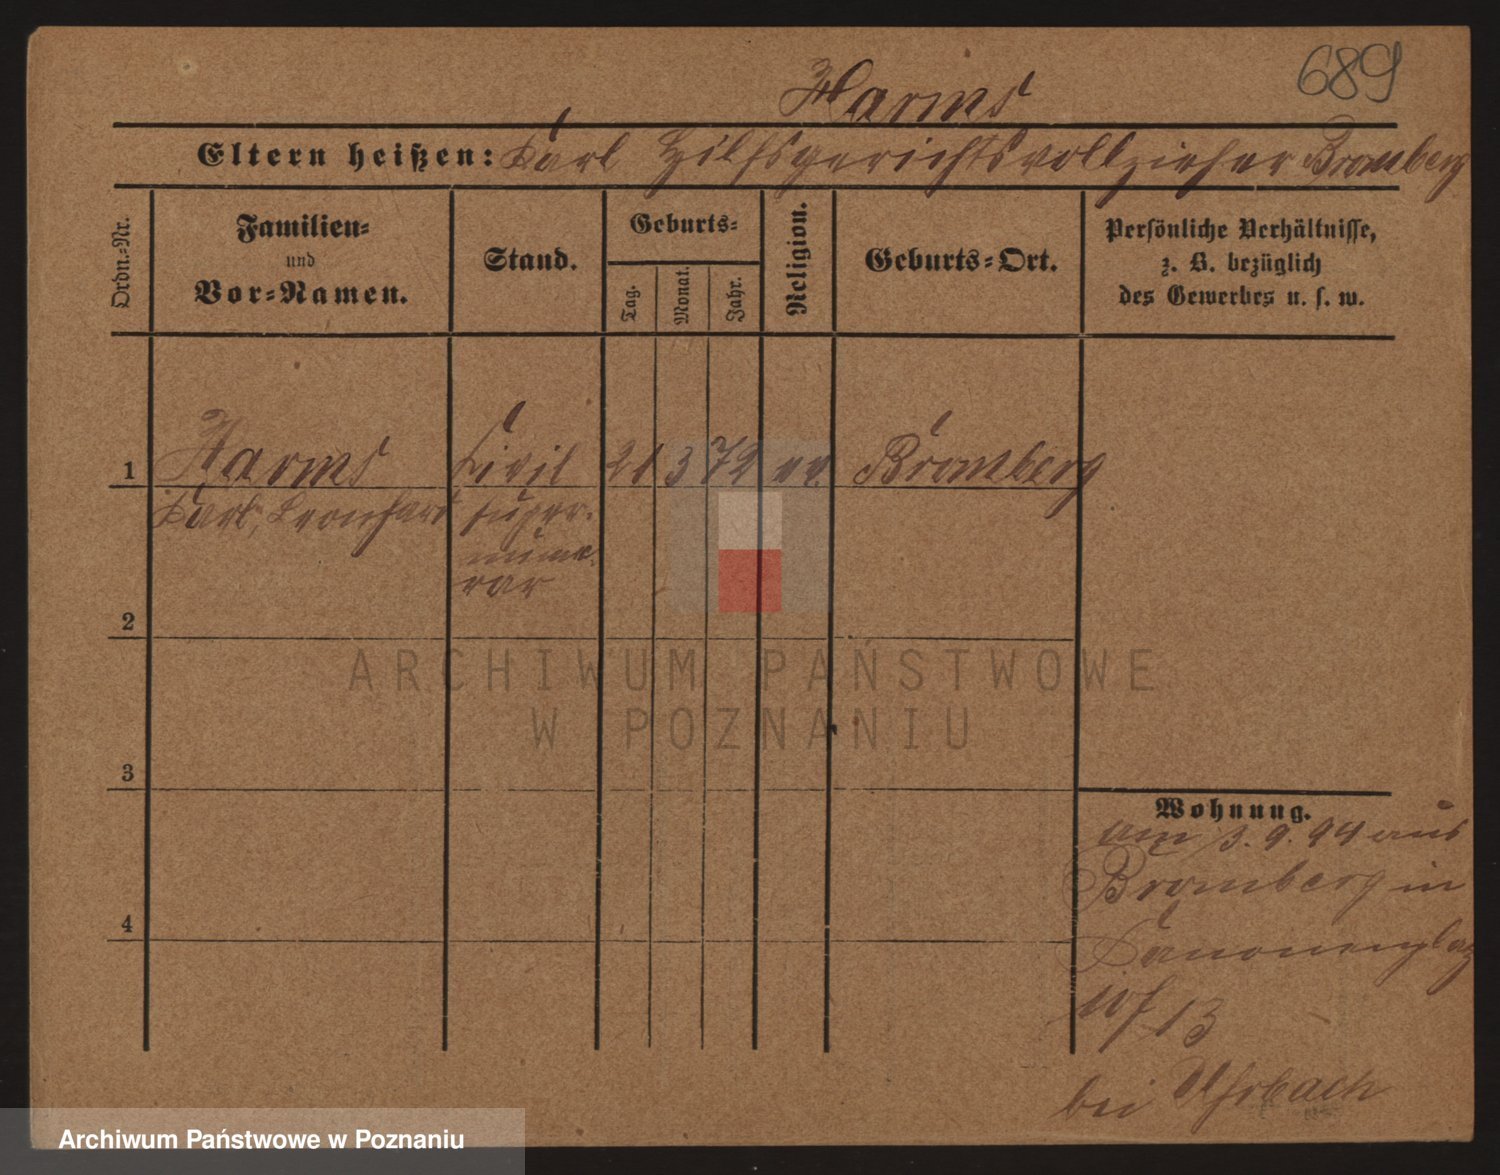 689
Harms
Eltern heißen: Karl Hilfsgerichtsvollzieher Bromberg
Ordn.-Nr.
Familien-
und
Vor-Namen.
Stand.
Geburts-
Tag.
Monat.
Jahr.
Religion.
Geburts-Ort.
Persönliche Verhältnisse,
z. B. bezüglich
des Gewerbes u. s. w.
1 Harms Civil 21 3 72 ev. Bromberg
Karl, Leonhard super-
nume-
rar
2
3
4
Wohnung.
am 3.9.94 aus
Bromberg in
Kanonenplatz
13
bei
ARCHIWUM PAŃSTWOWE
W POZNANIU
Archiwum Państwowe w Poznaniu